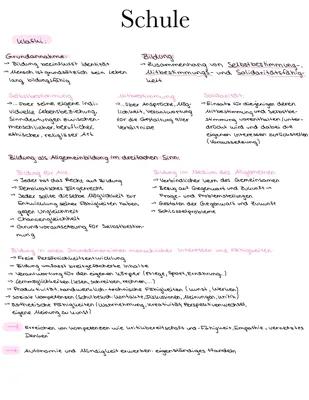 Schule
Klafki:
Grundannahme:
→ Bildung beeinflusst Identität
→ Mensch ist grundsätzlich sein Leben
lang bildungsfähig
Bildung:
→ Zusammenhang von Selbstbestimmung-,
Mitbestimmungs- und Solidaritätsfähig-
keit
Selbstbestimmung
→ über seine eigene indi-
viduelle Lebensbeziehung,
Sinndeutungen zwischen-
menschlicher, beruflicher,
ethischer, religiöser Art
Mitbestimmung
→ über Ansprüche, Mög-
lichkeit, Verantwortung
für die Gestaltung aller
Verhältnisse
Solidarität
→ Einsatz für diejenigen deren
Mitbestimmung und Selbstbe-
stimmung vorenthalten/unter-
drückt wird und dabei die
eigenen Interessen
(Voraussetzung)
Bildung als Allgemeinbildung im dreifachen Sinn:
Bildung für Alle
→ Jeder hat das Recht auf Bildung
→ Demokratisches Bürgerrecht
→ Jeder sollte dieselbe Möglichkeit zur
Entwicklung seiner Fähigkeiten haben
gegen Ungleichheit
→ Chancengleichheit
→ Grundvoraussetzung für Selbstbestim-
mung
Bildung im Medium des Allgemeinen
→ Verbindlicher Kern des Gemeinsamen
→ Bezug auf Gegenwart und Zukunft →
Frage- und Problemstellungen
→ Gestalten der Gegenwart und Zukunft
→ Schlüsselprobleme
Bildung in allen Grunddimensionen menschlicher Interessen und Fähigkeiten
→ Freie Persönlichkeitsentwicklung
→ Bildung umfasst breitgefächerte Inhalte
→ Verantwortung für den eigenen Körper (Pflege, Sport, Ernährung..)
→ Lernmöglichkeiten (lesen, schreiben, rechnen,..)
→ Produktivität handwerklich-technische Fähigkeiten (Kunst, Werken)
→ soziale Kompetenzen (Schulbesuch, Kontakte, Diskussionen, Meinungen, Kritik)
→ ästhetische Fähigkeiten (Wahrnehmung, Kreativität, Perspektivenwechsel,
eigene Meinung zu Kunst)
→ Erreichen von Kompetenzen wie Kritikbereitschaft und -fähigkeit, Empathie, "vernetztes
Denken"
→ Autonomie und Mündigkeit erwerben eigenständiges Handeln